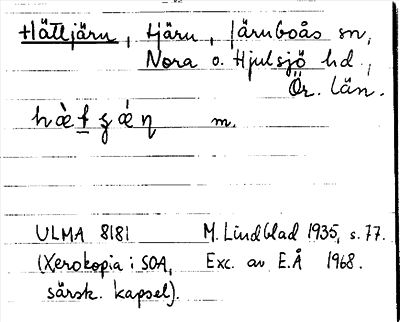 Hätjärn, Hjärn, Järnboås sn,
Nora o. Hjulsjö hd.,
Ör. län.
m.
ULMA 8181 M. Lindblad 1935, s. 77.
(Xerokopia i SOA, Exc. av E.Å 1968.
särsk. kapsel).